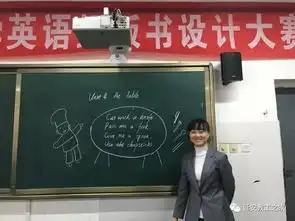 学英语 板书设计大赛
Unit 4 At table
Cut with a knife
Pass me a fork
Give me a spoon
Use my chopsticks